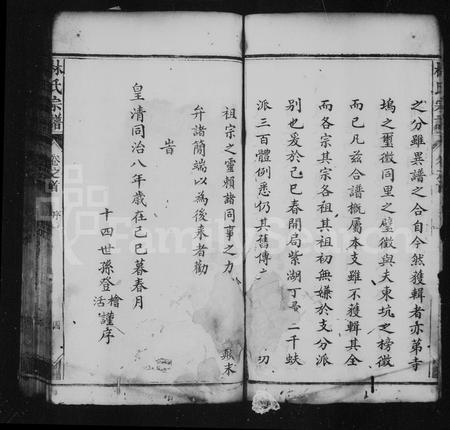 林氏宗譜
卷之首
之分雖異譜之合自今然獲輯者亦第寺
塢之璽徵同里之璧徵與夫東坑之榜徵
而已凡茲合譜概屬本支雖不獲輯其全
而各宗其宗各祖其祖初無嫌於支分派
別也爰於己巳春開局紫湖丁 二千蚨
派三百體例悉仍其舊傳之
切
祖宗之靈賴諸同事之力
顛末
弁諸簡端以為後來者勸
旹
皇清同治八年歲在己巳暮春月
十四世孫登
檜
活
謹序
林氏宗譜
卷之首
序
四
FamilySearch